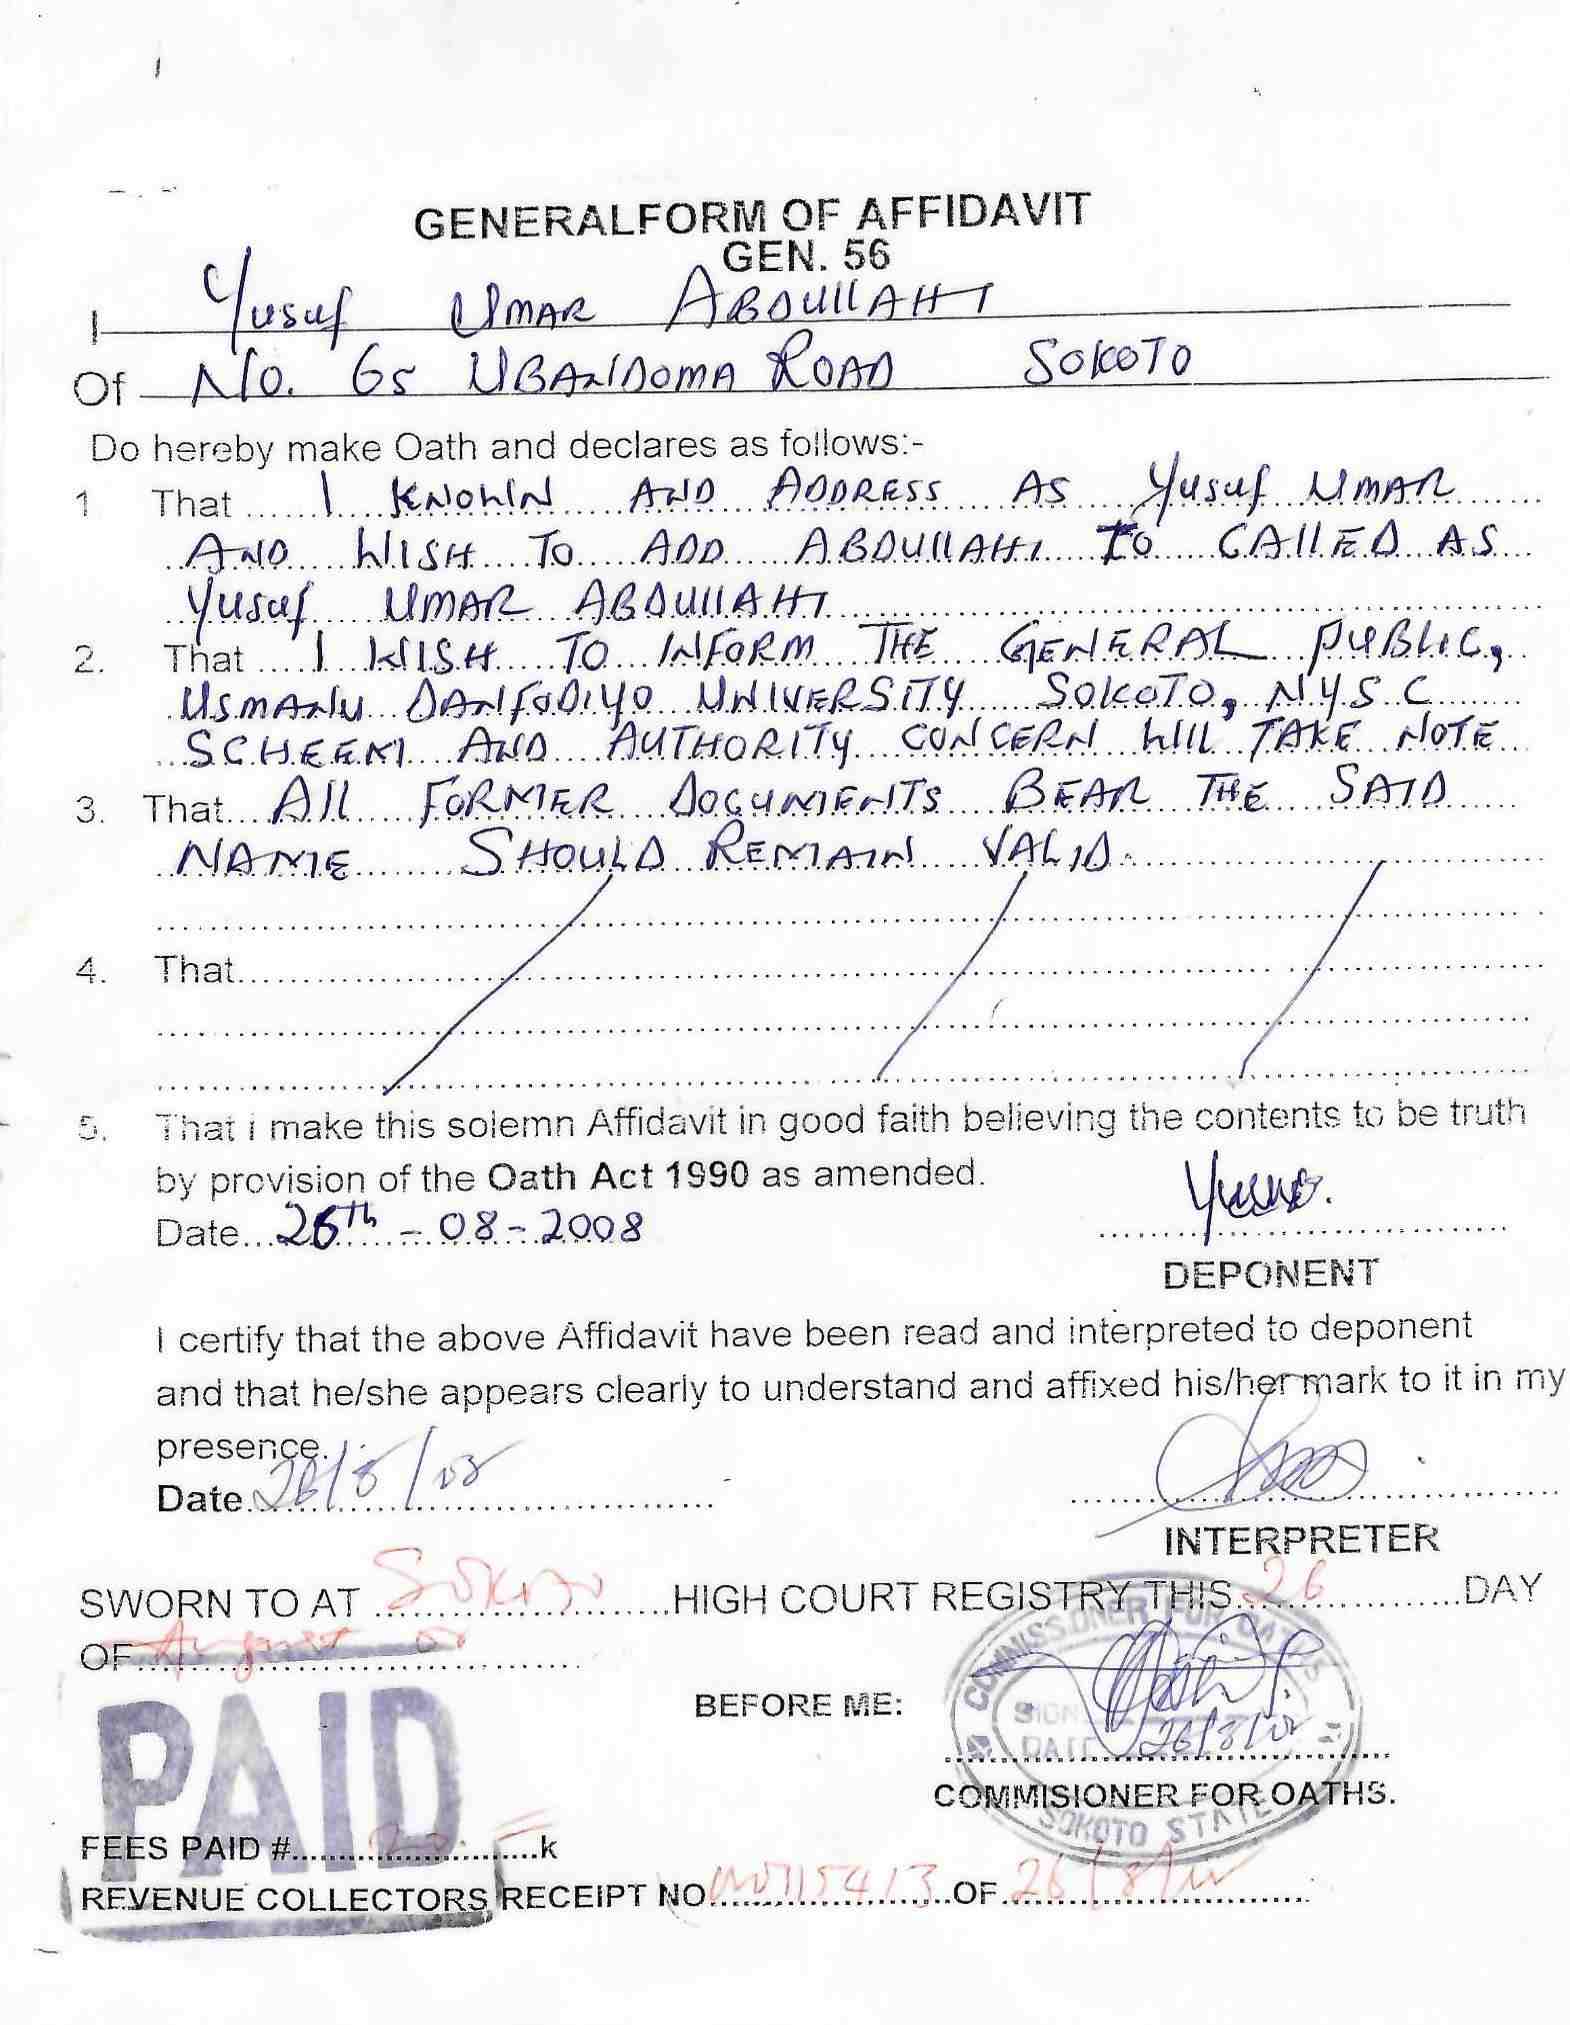 GENERALFORM OF AFFIDAVIT
GEN. 56
I Yusuf UMAR ABDULLAHI
Of No. 65 UBANDOMA ROAD SOKOTO
Do hereby make Oath and declares as follows:-
1 That I KNOWN AND ADDRESS AS Yusuf UMAR
AND WISH TO ADD ABDULLAHI TO CALLED AS
Yusuf UMAR ABDULLAHI
2. That I WISH TO INFORM THE GENERAL PUBLIC,
USMANU DANFODIYO UNIVERSITY SOKOTO, NYSC
SCHEEM AND AUTHORITY CONCERN WILL TAKE NOTE
3. That All FORMER DOCUMENTS BEAR THE SAID
NAME SHOULD REMAIN VALID.
4. That
5. That I make this solemn Affidavit in good faith believing the contents to be truth
by provision of the Oath Act 1990 as amended.
Date 26th - 08 - 2008
DEPONENT
I certify that the above Affidavit have been read and interpreted to deponent
and that he/she appears clearly to understand and affixed his/her mark to it in my
presence.
Date 26/8/08
INTERPRETER
SWORN TO AT SOKOTO HIGH COURT REGISTRY THIS 26 DAY
OF August
COMMISSIONER FOR OATHS
SIGN
DATE 26/8/08
SOKOTO STATE
BEFORE ME:
COMMISIONER FOR OATHS.
PAID
FEES PAID # k
REVENUE COLLECTORS RECEIPT NO OF 26/8/08